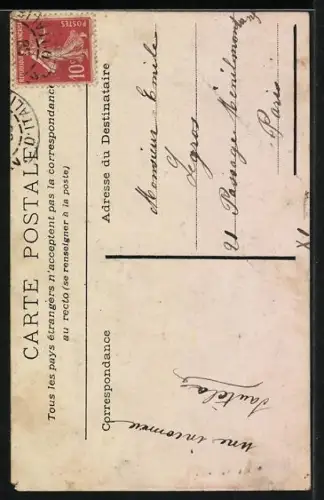 CARTE POSTALE
Tous les pays étrangers n'acceptent pas la correspondance
au recto (se renseigner à la poste)
Correspondance
Adresse du Destinataire
RÉPUBLIQUE FRANÇAISE
10c
POSTES
D'ITALIE
Monsieur Emile
Legros
Passage Ménilmontant
Paris
XI
une inconnue